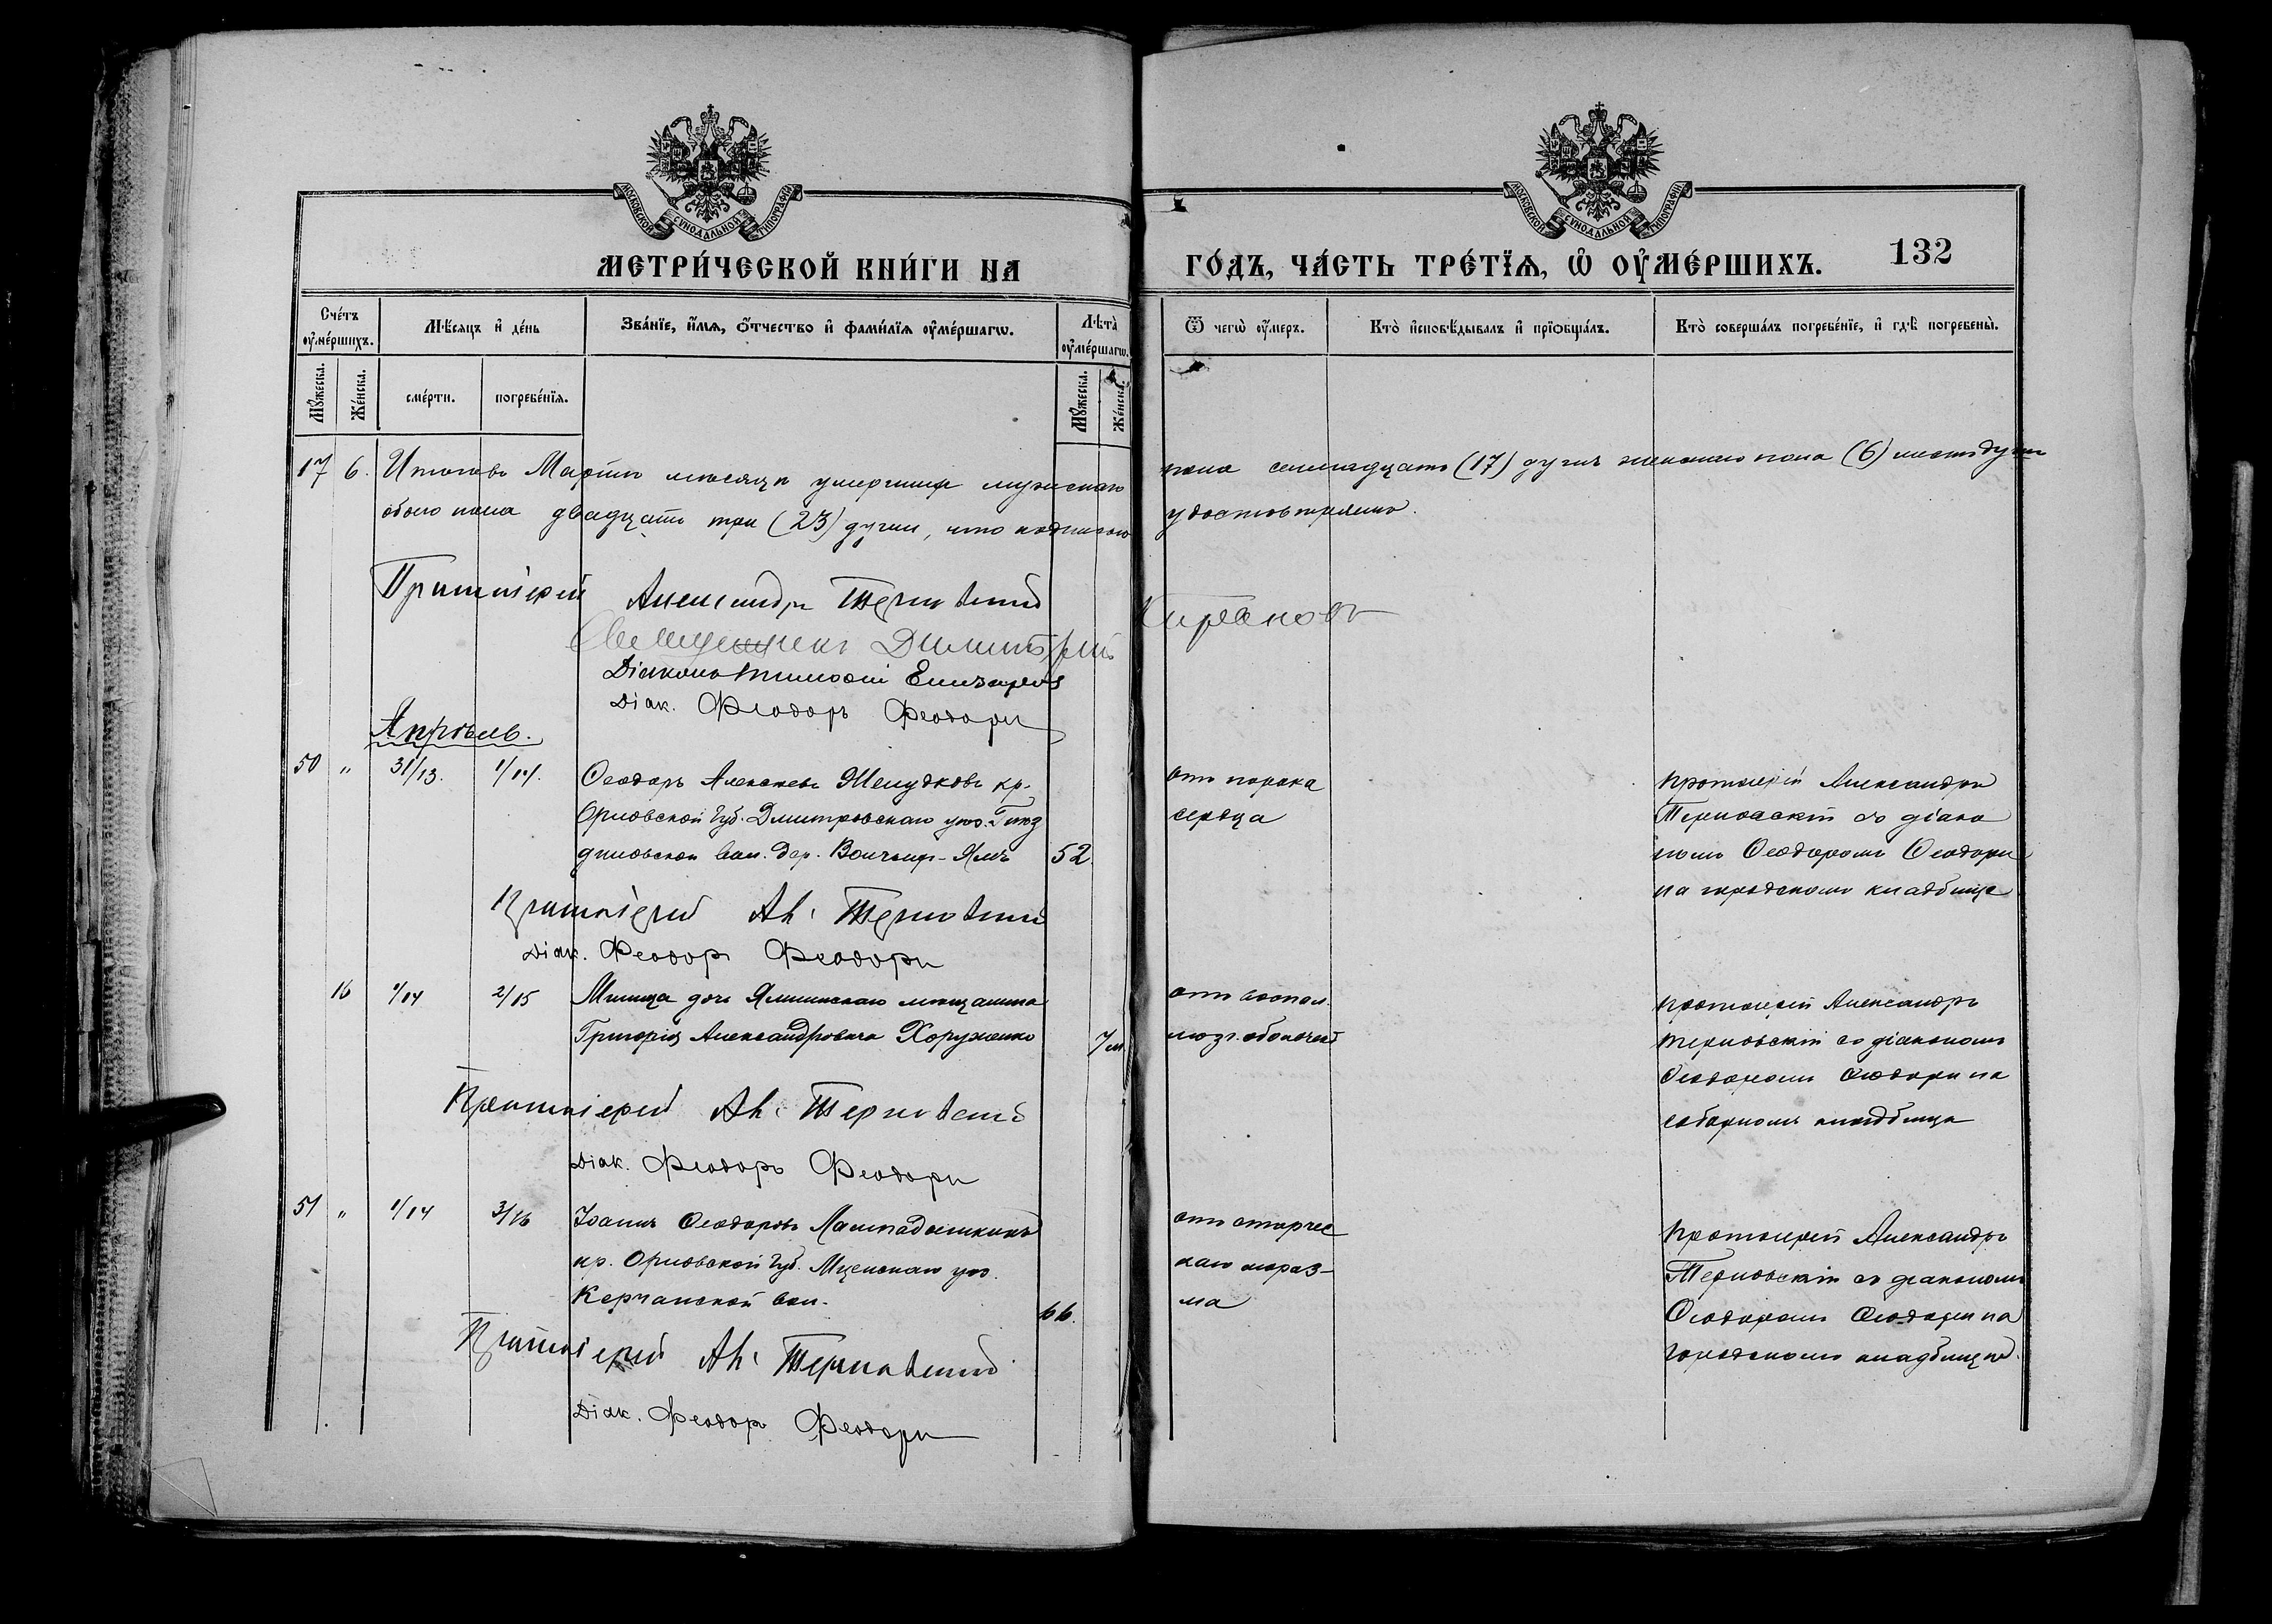 МОСКОВСКОЙ СѴНОДАЛЬНОЙ ТИПОГРАФІИ
МОСКОВСКОЙ СѴНОДАЛЬНОЙ ТИПОГРАФІИ
МЕТРИ́ЧЕСКОЙ КНИ́ГИ НА
ГО́ДЪ, ЧА́СТЬ ТРЕ́ТЇѦ, Ѡ ОУ҆МЕ́РШИХЪ.
132
Сче́тъ оу҆ме́ршихъ.
Мꙋжеска.
Же́нска.
Мѣ́сяцъ и҆ де́нь
сме́рти.
погребе́нїѧ.
Зва́нїе, и҆́мѧ, ѻ҆́тчество и҆ фами́лїѧ оу҆ме́ршагѡ.
Лѣта̀ оу҆ме́ршагѡ.
Мꙋжеска.
Же́нска.
Ѿ чегѡ̀ оу҆́меръ.
Кто̀ и҆сповѣ́дывалъ и҆ прїѻбща́лъ.
Кто̀ соверша́лъ погребе́нїе, и҆ гдѣ̀ погребены̀.
17 6. Итого въ Мартѣ мѣсяцѣ умершихъ мужскаго
пола семнадцать (17) душъ женскаго пола (6) шесть душъ
обоего пола двадцать три (23) души, что подписью
удостовѣряемъ.
Протоіерей Александръ Терновскій
Священникъ Димитрій
Діаконъ Тимофѣй
Діак. Ѳеодоръ Ѳеодори
Апрѣль.
50 " 31/13. 1/14. Ѳеодоръ Алексѣевъ Желудковъ кр.
Орловской Губ. Дмитровскаго уѣз.
вол. дер. 52.
отъ порока
сердца
Протоіерей Александръ
Терновскій съ діако
номъ Ѳеодоромъ Ѳеодори
на городскомъ кладбище
Протоіерей Ал. Терновскій
Діак. Ѳеодоръ Ѳеодори
16 1/14 2/15 Милица дочь Ялтинскаго мѣщанина
Григорія Александровича Хоруженко 7 м.
отъ воспал.
мозг. оболочекъ
Протоіерей Александръ
Терновскій съ діакономъ
Ѳеодоромъ Ѳеодори на
соборномъ кладбище
Протоіерей Ал. Терновскій
Діак. Ѳеодоръ Ѳеодори
51 " 1/14 3/16 Іоаннъ Ѳеодоровъ
кр. Орловской Губ. Мценскаго уѣз.
вол. 66.
отъ старчес
каго мараз-
ма
Протоіерей Александръ
Терновскій съ діакономъ
Ѳеодоромъ Ѳеодори на
городскомъ кладбищѣ.
Протоіерей Ал. Терновскій
Діак. Ѳеодоръ Ѳеодори